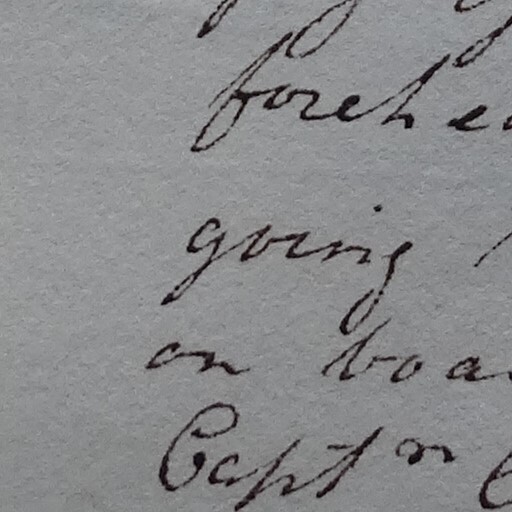 forehe
going
on boa
Capt n